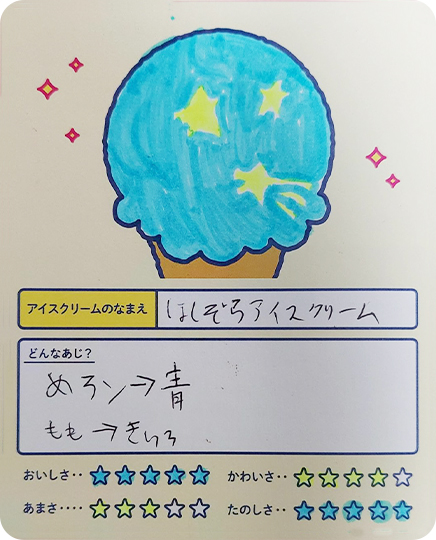 アイスクリームのなまえ
ほしぞらアイスクリーム
どんなあじ?
めろン→青
もも→きいろ
おいしさ‥ ★★★★★
かわいさ‥ ★★★★☆
あまさ‥‥ ★★★☆☆
たのしさ‥ ★★★★★